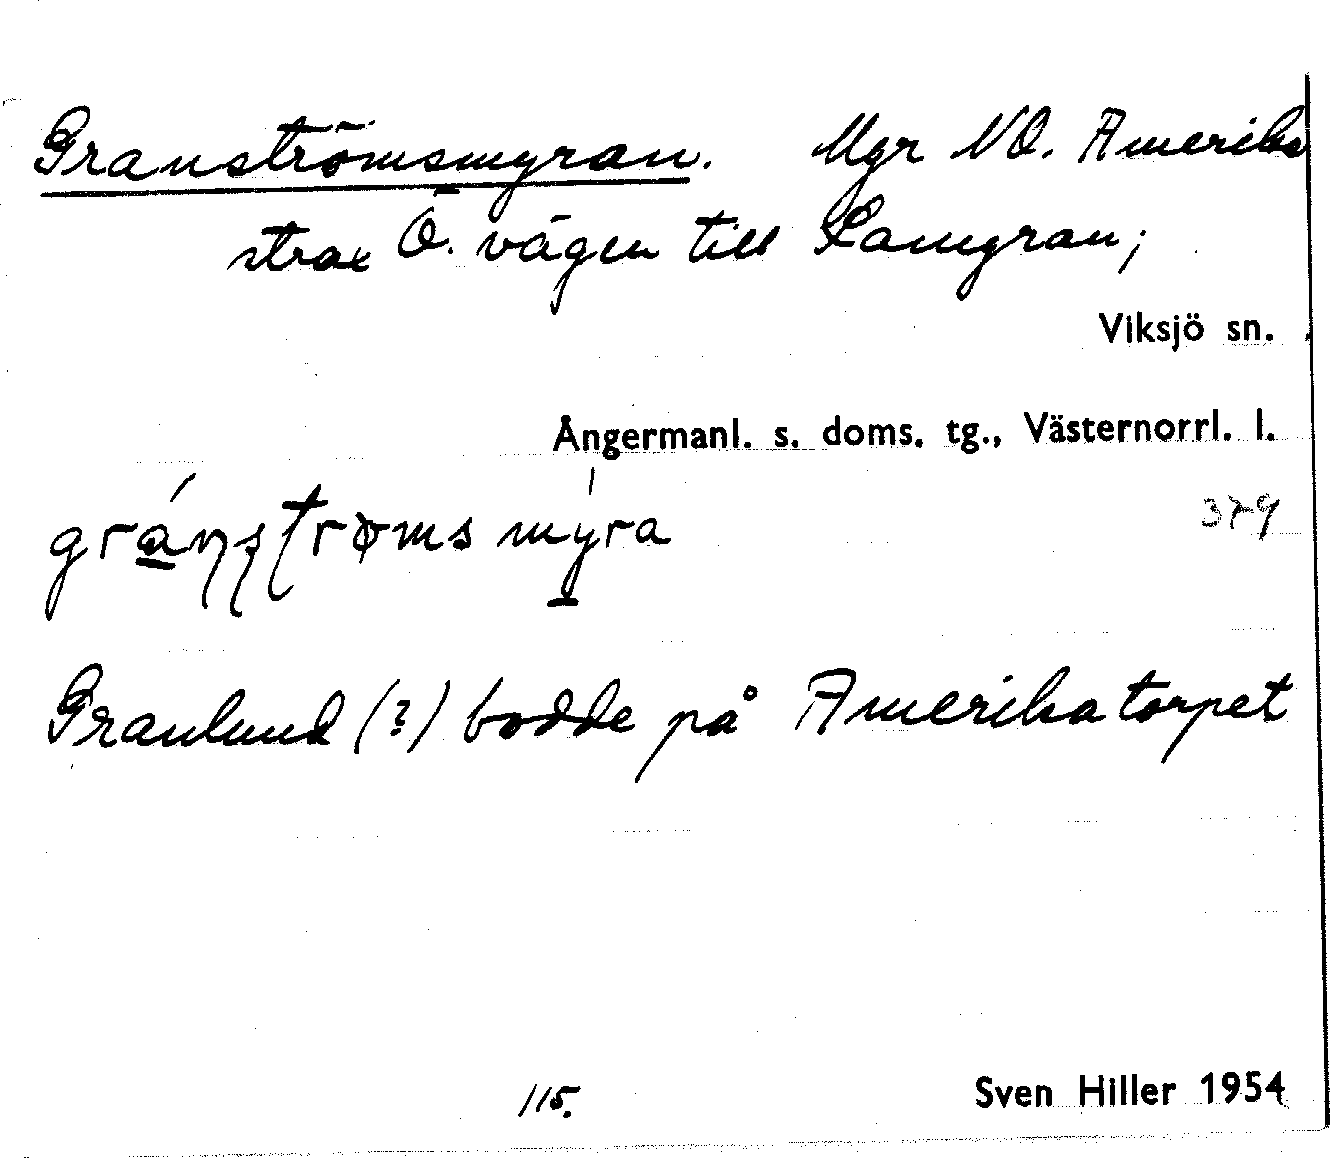 Granströmsmyran. Myr NO. Amerika
strax Ö. vägen till Lamyran;
Viksjö sn.
Ångermanl. s. doms. tg., Västernorrl. l.
379
Granlund (?) bodde på Amerikatorpet
115.
Sven Hiller 1954